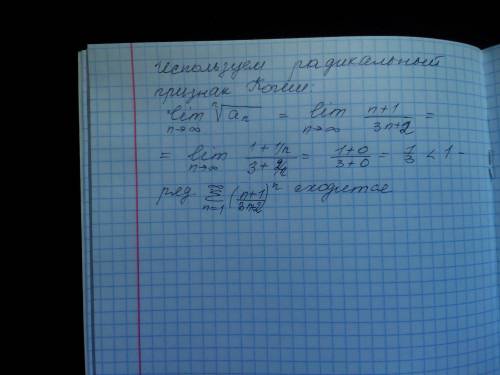 Используем радикальный
признак Коши:
lim n→∞ ⁿ√aₙ = lim n→∞ (n+1)/(3n+2) =
= lim n→∞ (1+1/n)/(3+2/n) = (1+0)/(3+0) = 1/3 < 1 -
ряд ∞∑n=1 ((n+1)/(3n+2))ⁿ сходится